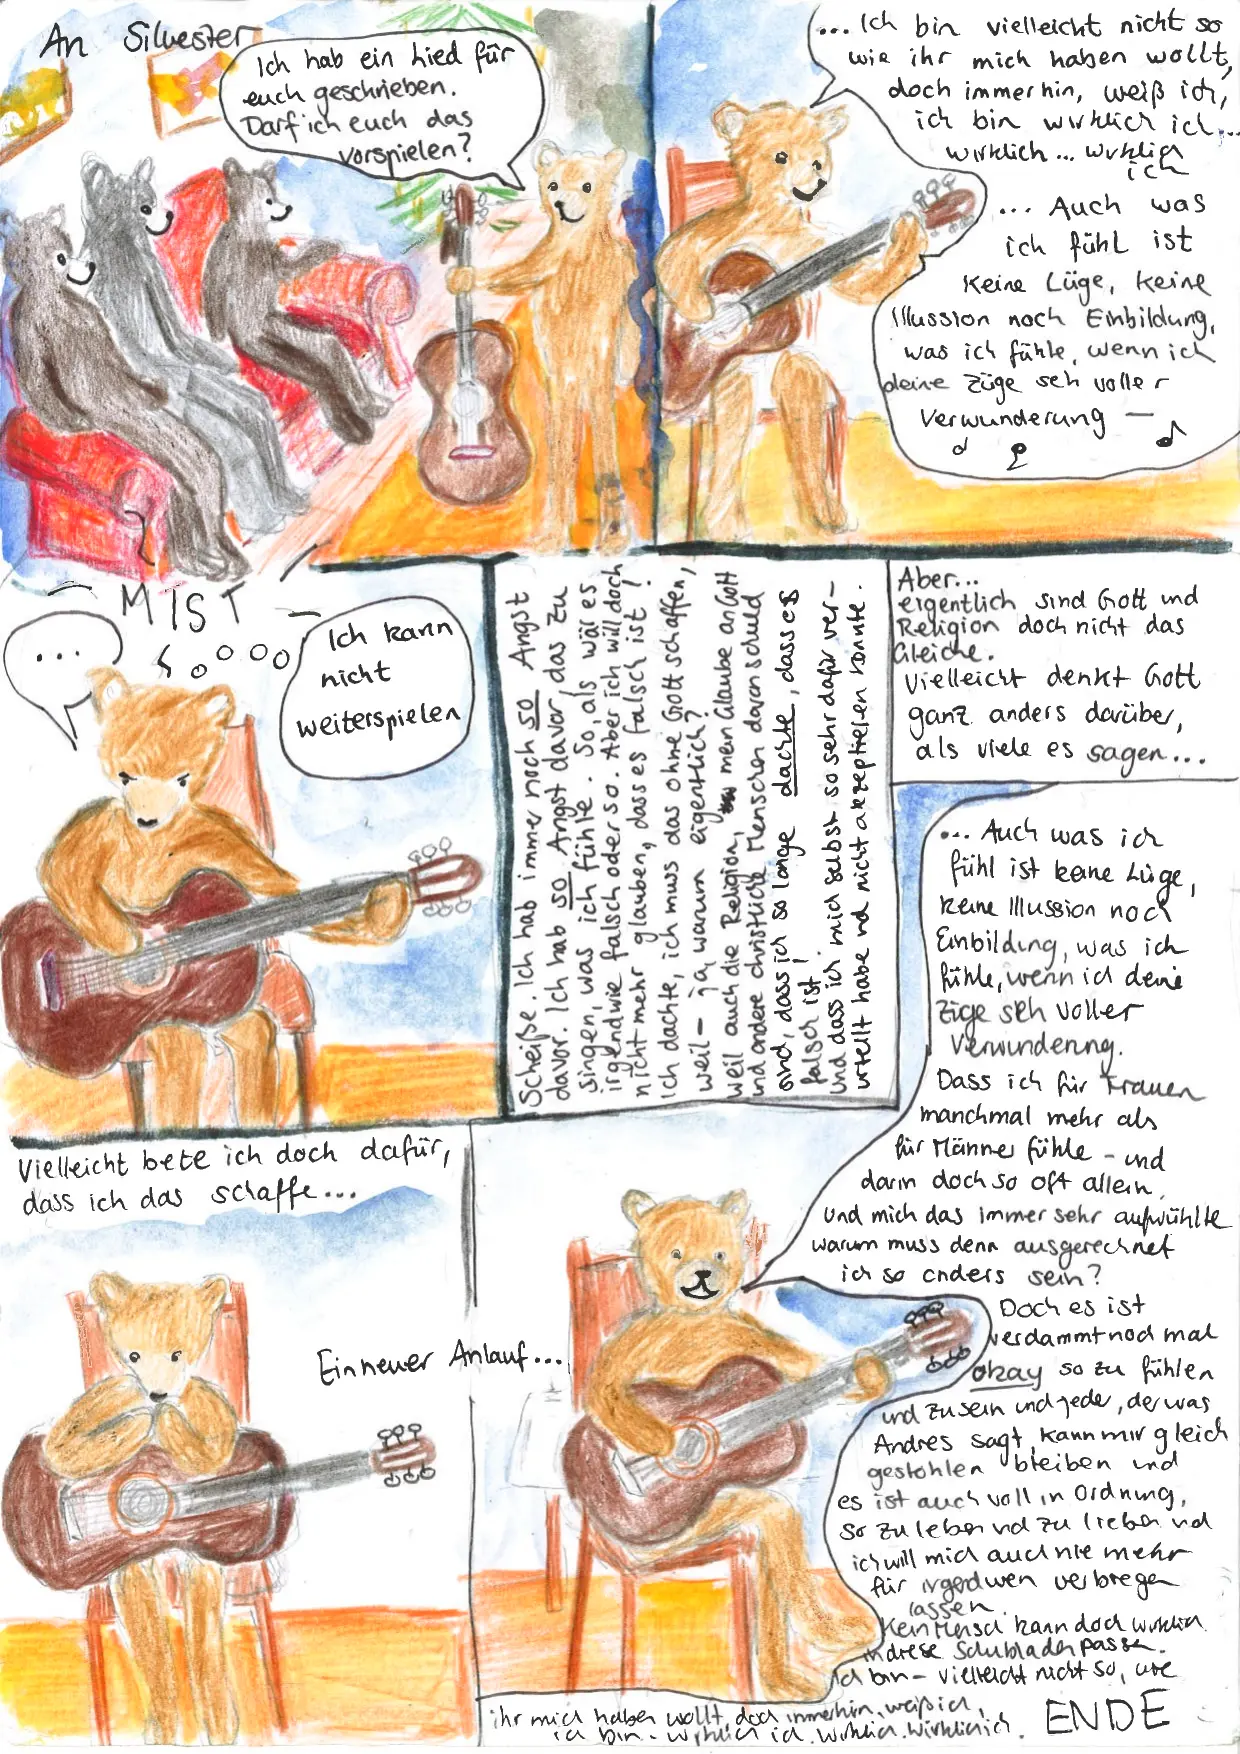 An Silvester
Ich hab ein Lied für
euch geschrieben.
Darf ich euch das
vorspielen?
... Ich bin vielleicht nicht so
wie ihr mich haben wollt,
doch immerhin, weiß ich,
ich bin wirklich ich...
wirklich ... wirklich
ich
... Auch was
ich fühl ist
keine Lüge, keine
Illussion noch Einbildung,
was ich fühle, wenn ich
deine Züge seh voller
Verwunderung —
MIST
...
Ich kann
nicht
weiterspielen
Scheiße. Ich hab immer noch so Angst
davor. Ich hab so Angst davor das zu
singen, was ich fühle. So, als wär es
irgendwie falsch oder so. Aber ich will doch
nicht mehr glauben, dass es falsch ist!
Ich dachte, ich muss das ohne Gott schaffen,
weil - ja, warum eigentlich?
Weil auch die Religion, mein Glaube an Gott
und andere christliche Menschen daran schuld
sind, dass ich so lange dachte, dass es
falsch ist!
Und dass ich mich selbst so sehr dafür ver-
urteilt habe und nicht akzeptieren konnte.
Aber...
eigentlich sind Gott und
Religion doch nicht das
Gleiche.
Vielleicht denkt Gott
ganz anders darüber,
als viele es sagen...
Vielleicht bete ich doch dafür,
dass ich das schaffe...
Ein neuer Anlauf...
... Auch was ich
fühl ist keine Lüge,
keine Illussion noch
Einbildung, was ich
fühle, wenn ich deine
Züge seh voller
Verwunderung.
Dass ich für Frauen
manchmal mehr als
für Männer fühle - und
darin doch so oft allein,
und mich das immer sehr aufwühlte
warum muss denn ausgerechnet
ich so anders sein?
Doch es ist
verdammt noch mal
okay so zu fühlen
und zu sein und jeder, der was
Andres sagt, kann mir gleich
gestohlen bleiben und
es ist auch voll in Ordnung,
so zu leben und zu lieben und
ich will mich auch nie mehr
für irgendwen verbiegen
lassen.
Kein Mensch kann doch wirklich
in diese Schubladen passen.
Ich bin - vielleicht nicht so, wie
ihr mich haben wollt, doch immerhin, weiß ich,
ich bin - wirklich ich. wirklich. wirklich ich.
ENDE